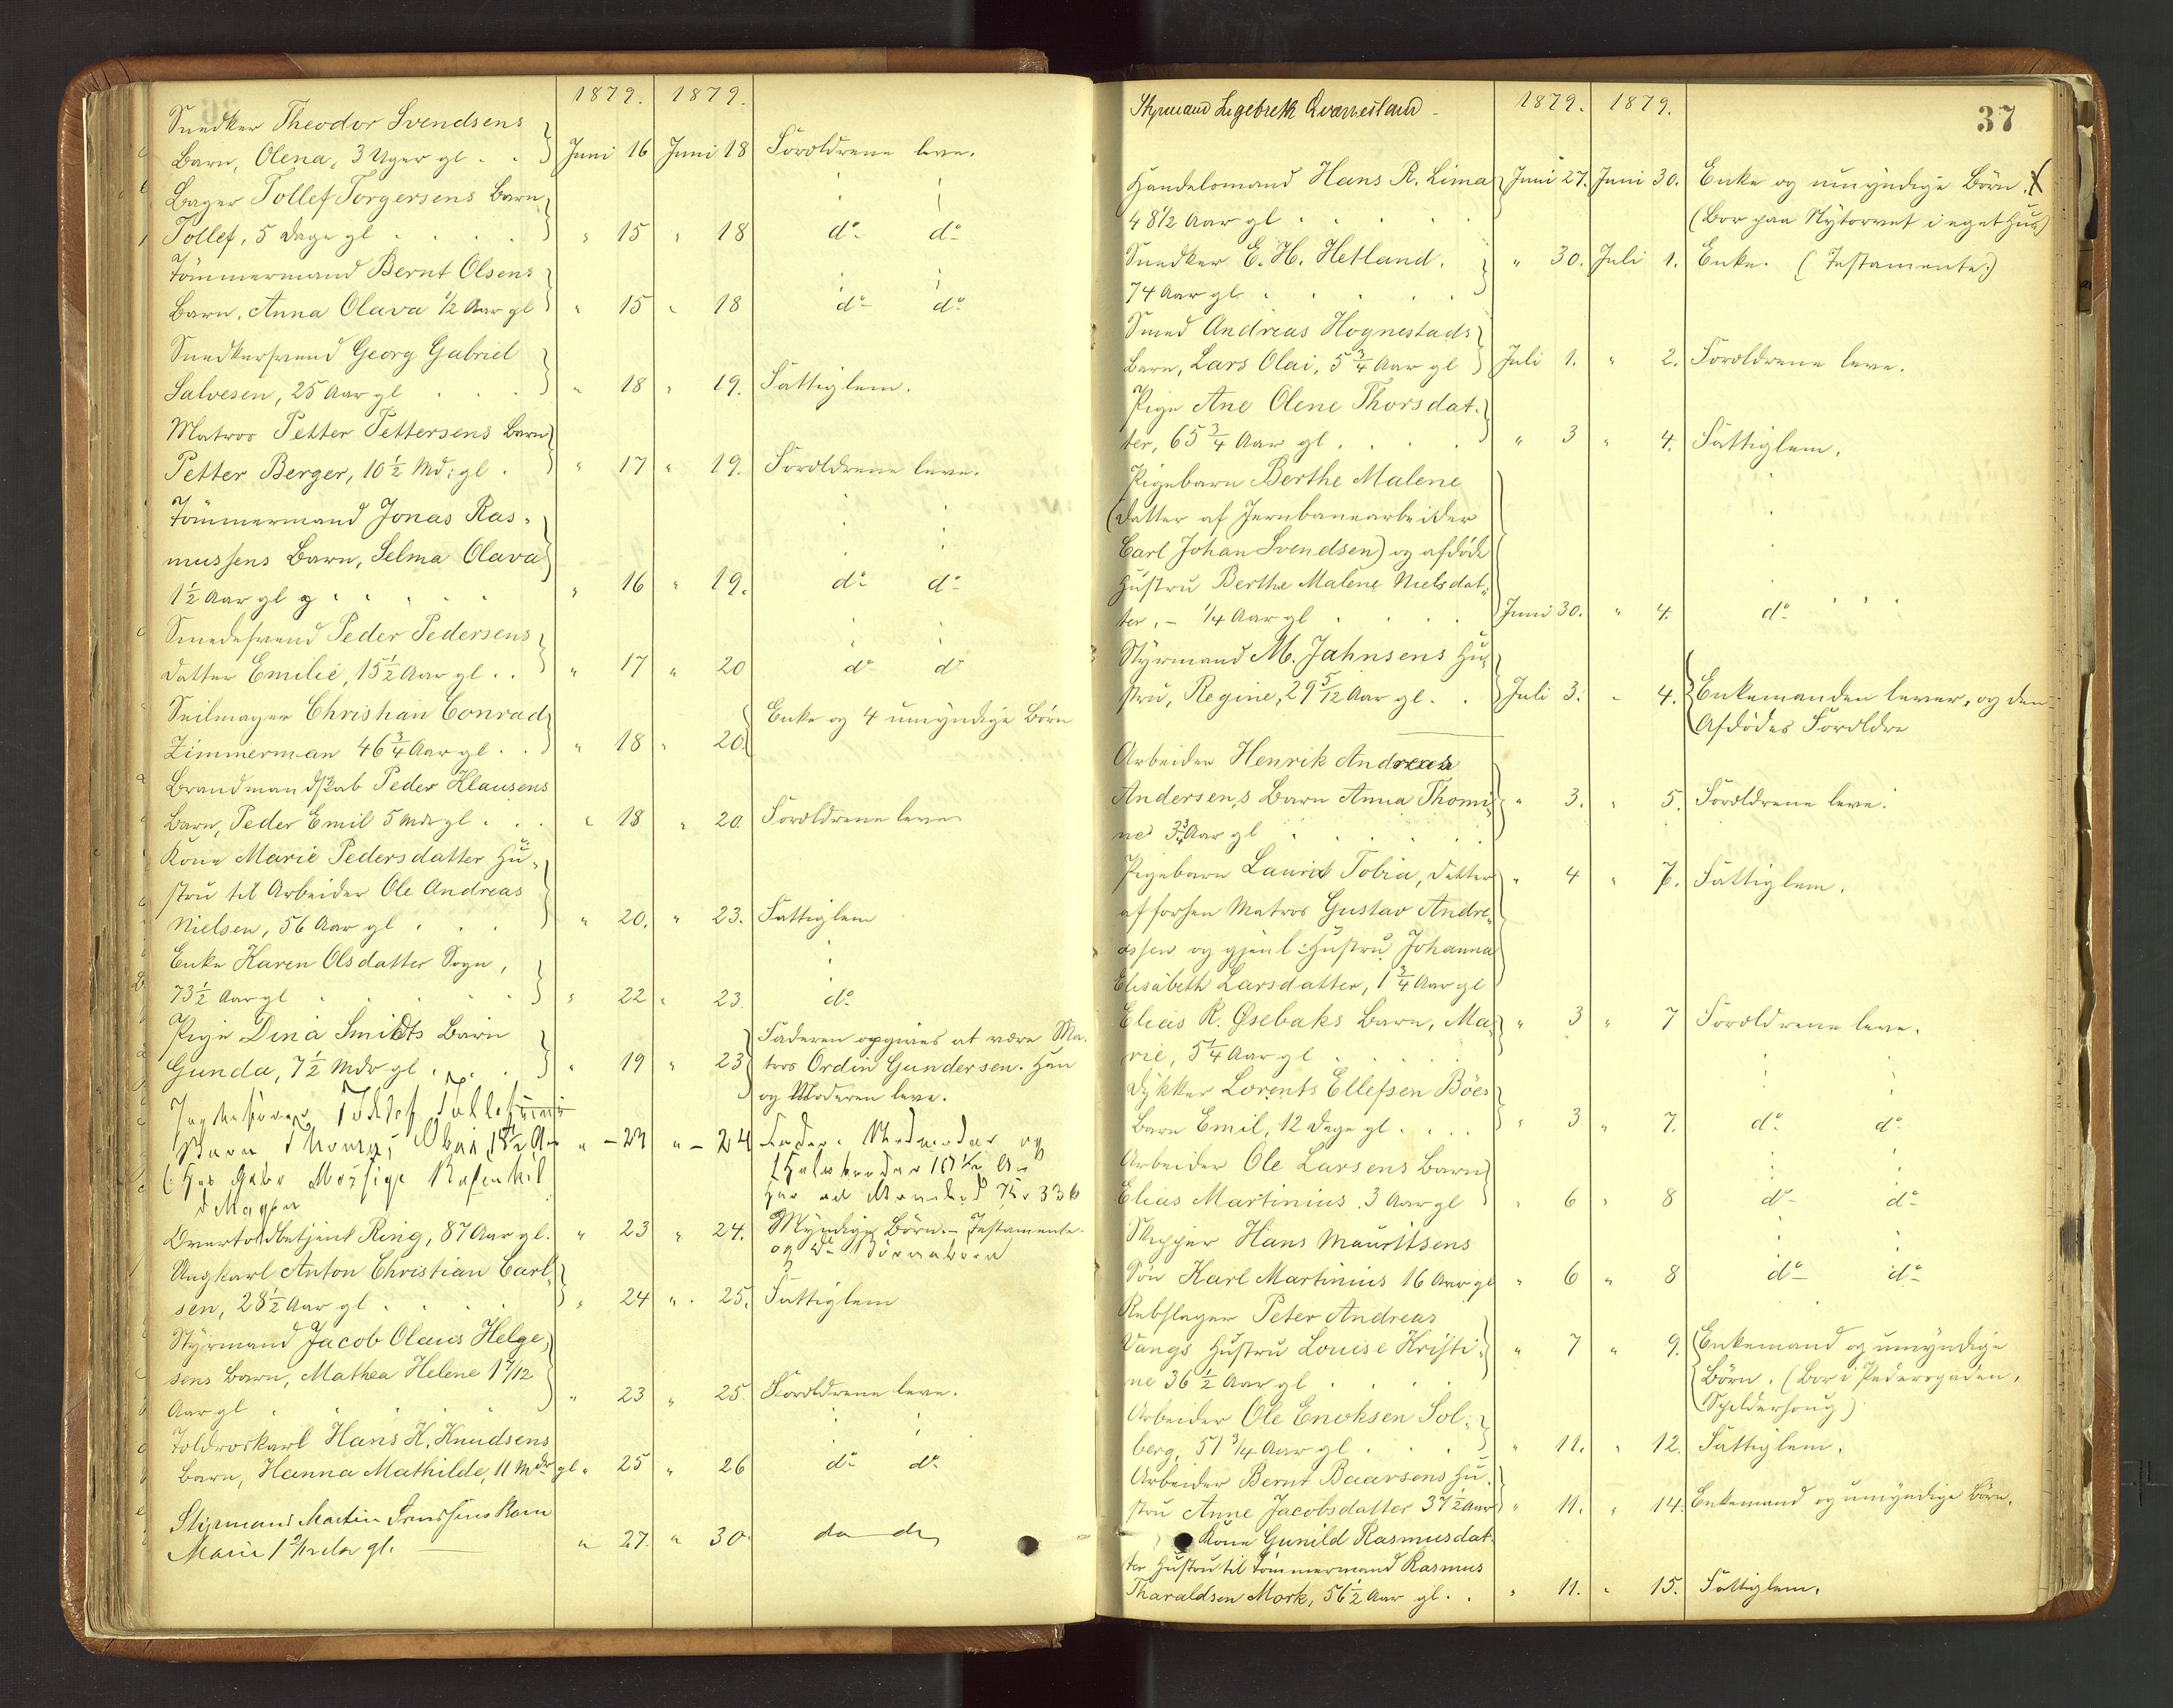 1879. 1879.
Snedker Theodor Svendsens
Barn, Olena, 3 Uger gl. Juni 16 Juni 18 Forældrene leve.
Bager Tollef Torgersens Barn
Tollef, 5 Dage gl " 15 " 18 do do
Tömmermand Bernt Olsens
Barn, Anna Olava 1/2 Aar gl " 15 " 18 do do
Snedkersvend Georg Gabriel
Salvesen, 25 Aar gl " 18 " 19. Fattiglem.
Matros Petter Pettersens Barn
Petter Berger, 10 1/2 Md: gl. " 17 " 19. Forældrene leve.
Tömmermand Jonas Ras-
mussens Barn, Selma Olava
1 1/2 Aar gl " 16 " 19. do do
Smedesvend Peder Pedersens
Datter Emilie, 15 1/2 Aar gl. " 17 " 20 do do
Seilmager Christian Conrad
Zimmerman 46 3/4 Aar gl. " 18 " 20. Enke og 4 umyndige Börn
Brandmandskab Peder Klausens
Barn, Peder Emil 5 Mdr gl. " 18 " 20. Forældrene leve
Kone Marie Pedersdatter Hu-
stru til Arbeider Ole Andreas
Nielsen, 56 Aar gl " 20. " 23. Fattiglem
Enke Karen Olsdatter Sogn,
73 1/2 Aar gl " 22 " 23. do
Pige Dina Smidts Barn
Gunda, 7 1/2 Mdr gl. " 19 " 23 Faderen opgives at være Ma-
tros Ordin Gundersen. Han
og Moderen leve.
Tollef Tollefsens
Barn Thomas, 18 1/2 Aar " - 24 " - 24 Fader, Stedmoder og
Overtoldbetjent Ring, 87 Aar gl. " 23 " 24. Myndige Börn. - Testamente.
og do Börnebörn
Ungkarl Anton Christian Carl-
sen, 28 1/2 Aar gl. " 24 " 25. Fattiglem
Styrmand Jacob Olaus Helge-
sens Barn, Mathea Helene 1 7/12
Aar gl " 23 " 25. Forældrene leve.
Toldroskarl Hans K. Knudsens
Barn, Hanna Mathilde, 11 Mdr gl " 25 " 26 do do
Styrmand Martin Barn
Marie 1 Aar gl. " 27. " 30. do do
Styrmand Ingebreth Qvannesland - 1879. 1879. 37
Handelsmand Hans R. Lima Juni 27. Juni 30. Enke og umyndige Börn.
48 1/2 Aar gl (Bor paa Nytorvet i eget Hus)
Snedker E. H. Hetland. " 30. Juli 1. Enke. (Testamente.)
74 Aar gl.
Smed Andreas Hognestads
Barn, Lars Olai, 5 3/4 Aar gl Juli 1. " 2. Forældrene leve.
Pige Ane Olene Thorsdat-
ter, 65 3/4 Aar gl. " 3 " 4. Fattiglem.
Pigebarn Berthe Malene
(Datter af Jernbanearbeider
Carl Johan Svendsen) og afdöde
Hustru Berthe Malene Nielsdat-
ter, - 1/4 Aar gl Juni 30. " 4. do
Styrmand M. Jahnsens Hu-
stru, Regine, 29 5/12 Aar gl. Juli 3. " 4. Enkemanden lever, og den
Afdödes Forældre
Arbeider Henrik Andreas
Andersens Barn Anna Thomi- " 3. " 5. Forældrene leve.
ne 3 3/4 Aar gl
Pigebarn Laura Tobia, Datter " 4 " 7. Fattiglem.
af forhen Matros Gustav Andre-
assen og gjenl: Hustru Johanna
Elisabeth Larsdatter, 1 3/4 Aar gl
Elias R. Øsebaks Barn, Ma- " 3 " 7 Forældrene leve.
rie, 5 1/4 Aar gl
Dykker Lorents Ellefsen Böes
Barn Emil, 12 Dage gl. " 3 " 7. do do
Arbeider Ole Larsens Barn
Elias Martinius, 3 Aar gl " 6 " 8 do do
Skipper Hans Mauritsens
Sön Karl Martinius 16 Aar gl " 6 " 8 do do
Rebslager Peter Andreas
Vangs Hustru Louise Kristi- " 7 " 9. Enkemand og umyndige
ne 36 1/2 Aar gl Börn. (Bor i Pedersgaden,
Arbeider Ole Enoksen Sol-
berg, 51 3/4 Aar gl. " 11. " 12. Fattiglem.
Arbeider Bernt Baarsens Hu-
stru Anne Jacobsdatter 37 1/2 Aar " 11. " 14. Enkemand og umyndige Börn.
Kone Gunild Rasmusdat-
ter Hustru til Tömmermand Rasmus
Tharaldsen Mork, 56 1/2 Aar gl. " 11. " 15. Fattiglem.